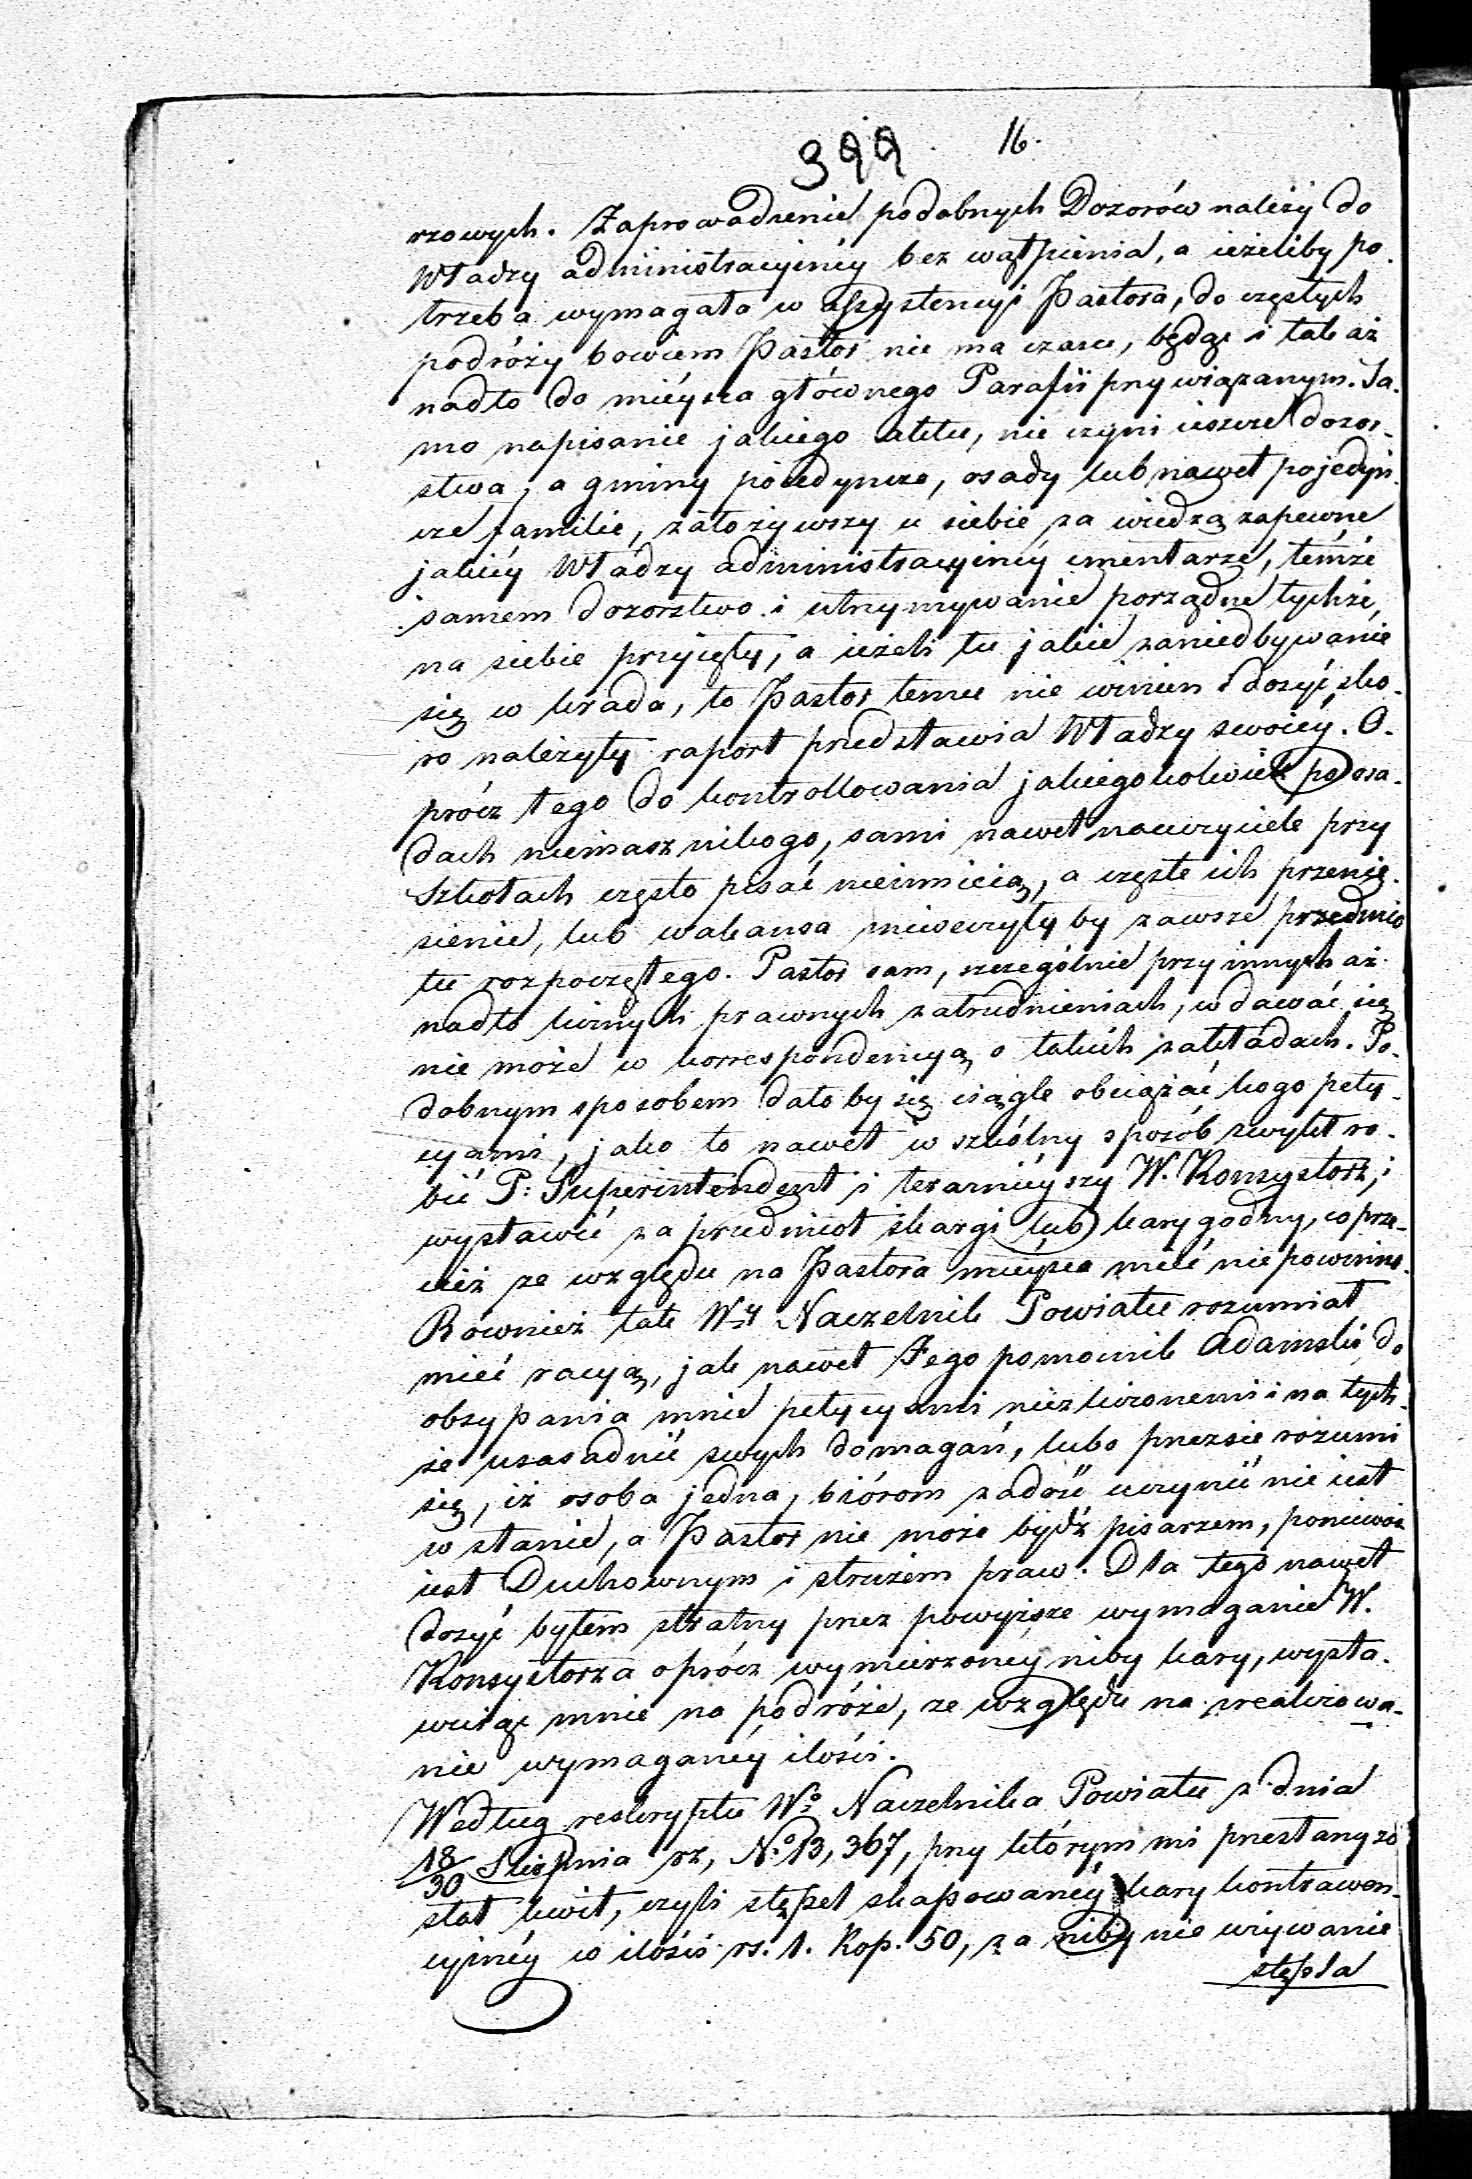 399. 16.
rzowych. Zaprowadzenie podobnych Dozorów należy do
Władzy administracyinéy bez wątpienia, a ieżeliby po-
trzeba wymagała w assystencyi Pastora, do częstych
podróży bowiem Pastor nie ma czasu, będąc i tak aż
nadto do mieysca głównego Parafii przywiązanym. Sa-
mo napisanie jakiego aktu, nie czyni ieszcze dozor-
stwa, a gminy poiedyncze, osady lub nawet pojedyń-
cze familie, założywszy u siebie za wiedzą zapewne
jakiéy Władzy administracyinéy cmentarze, témże
samem dozorstwo i utrzymywanie porządne tychże,
na siebie przyięły, a ieżeli tu jakie zaniedbywanie
się w krada, to Pastor temu nie winien i dosyć sko-
ro należyty raport przedstawia Władzy swoiéy. O-
prócz tego do kontrollowania jakiegokolwiek po osa-
dach niemasz nikogo, sami nawet nauczyciele przy
Szkołach często pisać nieumieią, a częste ich przenie-
sienie, lub wakansa niweczyłyby zawsze przedmio
tu rozpoczętego. Pastor sam, szczególnie przy innych aż
nadto licznych prawnych zatrudnieniach, wdawać się
nie może w korrespondencyą o takich zakładach. Po-
dobnym sposobem dało by się ciągle obciążać kogo pety-
cyami, jako to nawet w szkólny sposób zwykł ro-
bić P: Superintendent i terarnieyszy W. Konsystorz, i
wystawić za przedmiot skargi lub kary godny, co prze-
cież ze względu na Pastora mieysca mieć nie powinno.
Również tak Wy Naczelnik Powiatu rozumiał
mieć racyą, jak nawet Jego pomocnik Adamski do
obsypania mnie petycyami niezliczonemi i na tych-
że uzasadnić swych domagań, lubo przezsie rozumi
się, iż osoba jedna, biórom zadość uczynić nie iest
w stanie, a Pastor nie może bydź pisarzem, ponieważ
iest Duchownym i stróżem praw. Dla tego nawet
dosyć byłem stratny przez powyższe wymaganie W.
Konsystorza oprócz wymierzonéy niby kary, wysta-
wiaiąc mnie na podróże, ze względu na zrealizowa-
nie wymaganéy ilości.
Według reskryptu Wo Naczelnika Powiatu z dnia
18/30 Sierpnia rz, No 13,367, przy którym mi przesłany zo
stał kwit, czyli stępel skassowanéy kary kontrawen-
cyinéy w ilości rs. 1. Kop. 50, za niby nie używanie
stępla